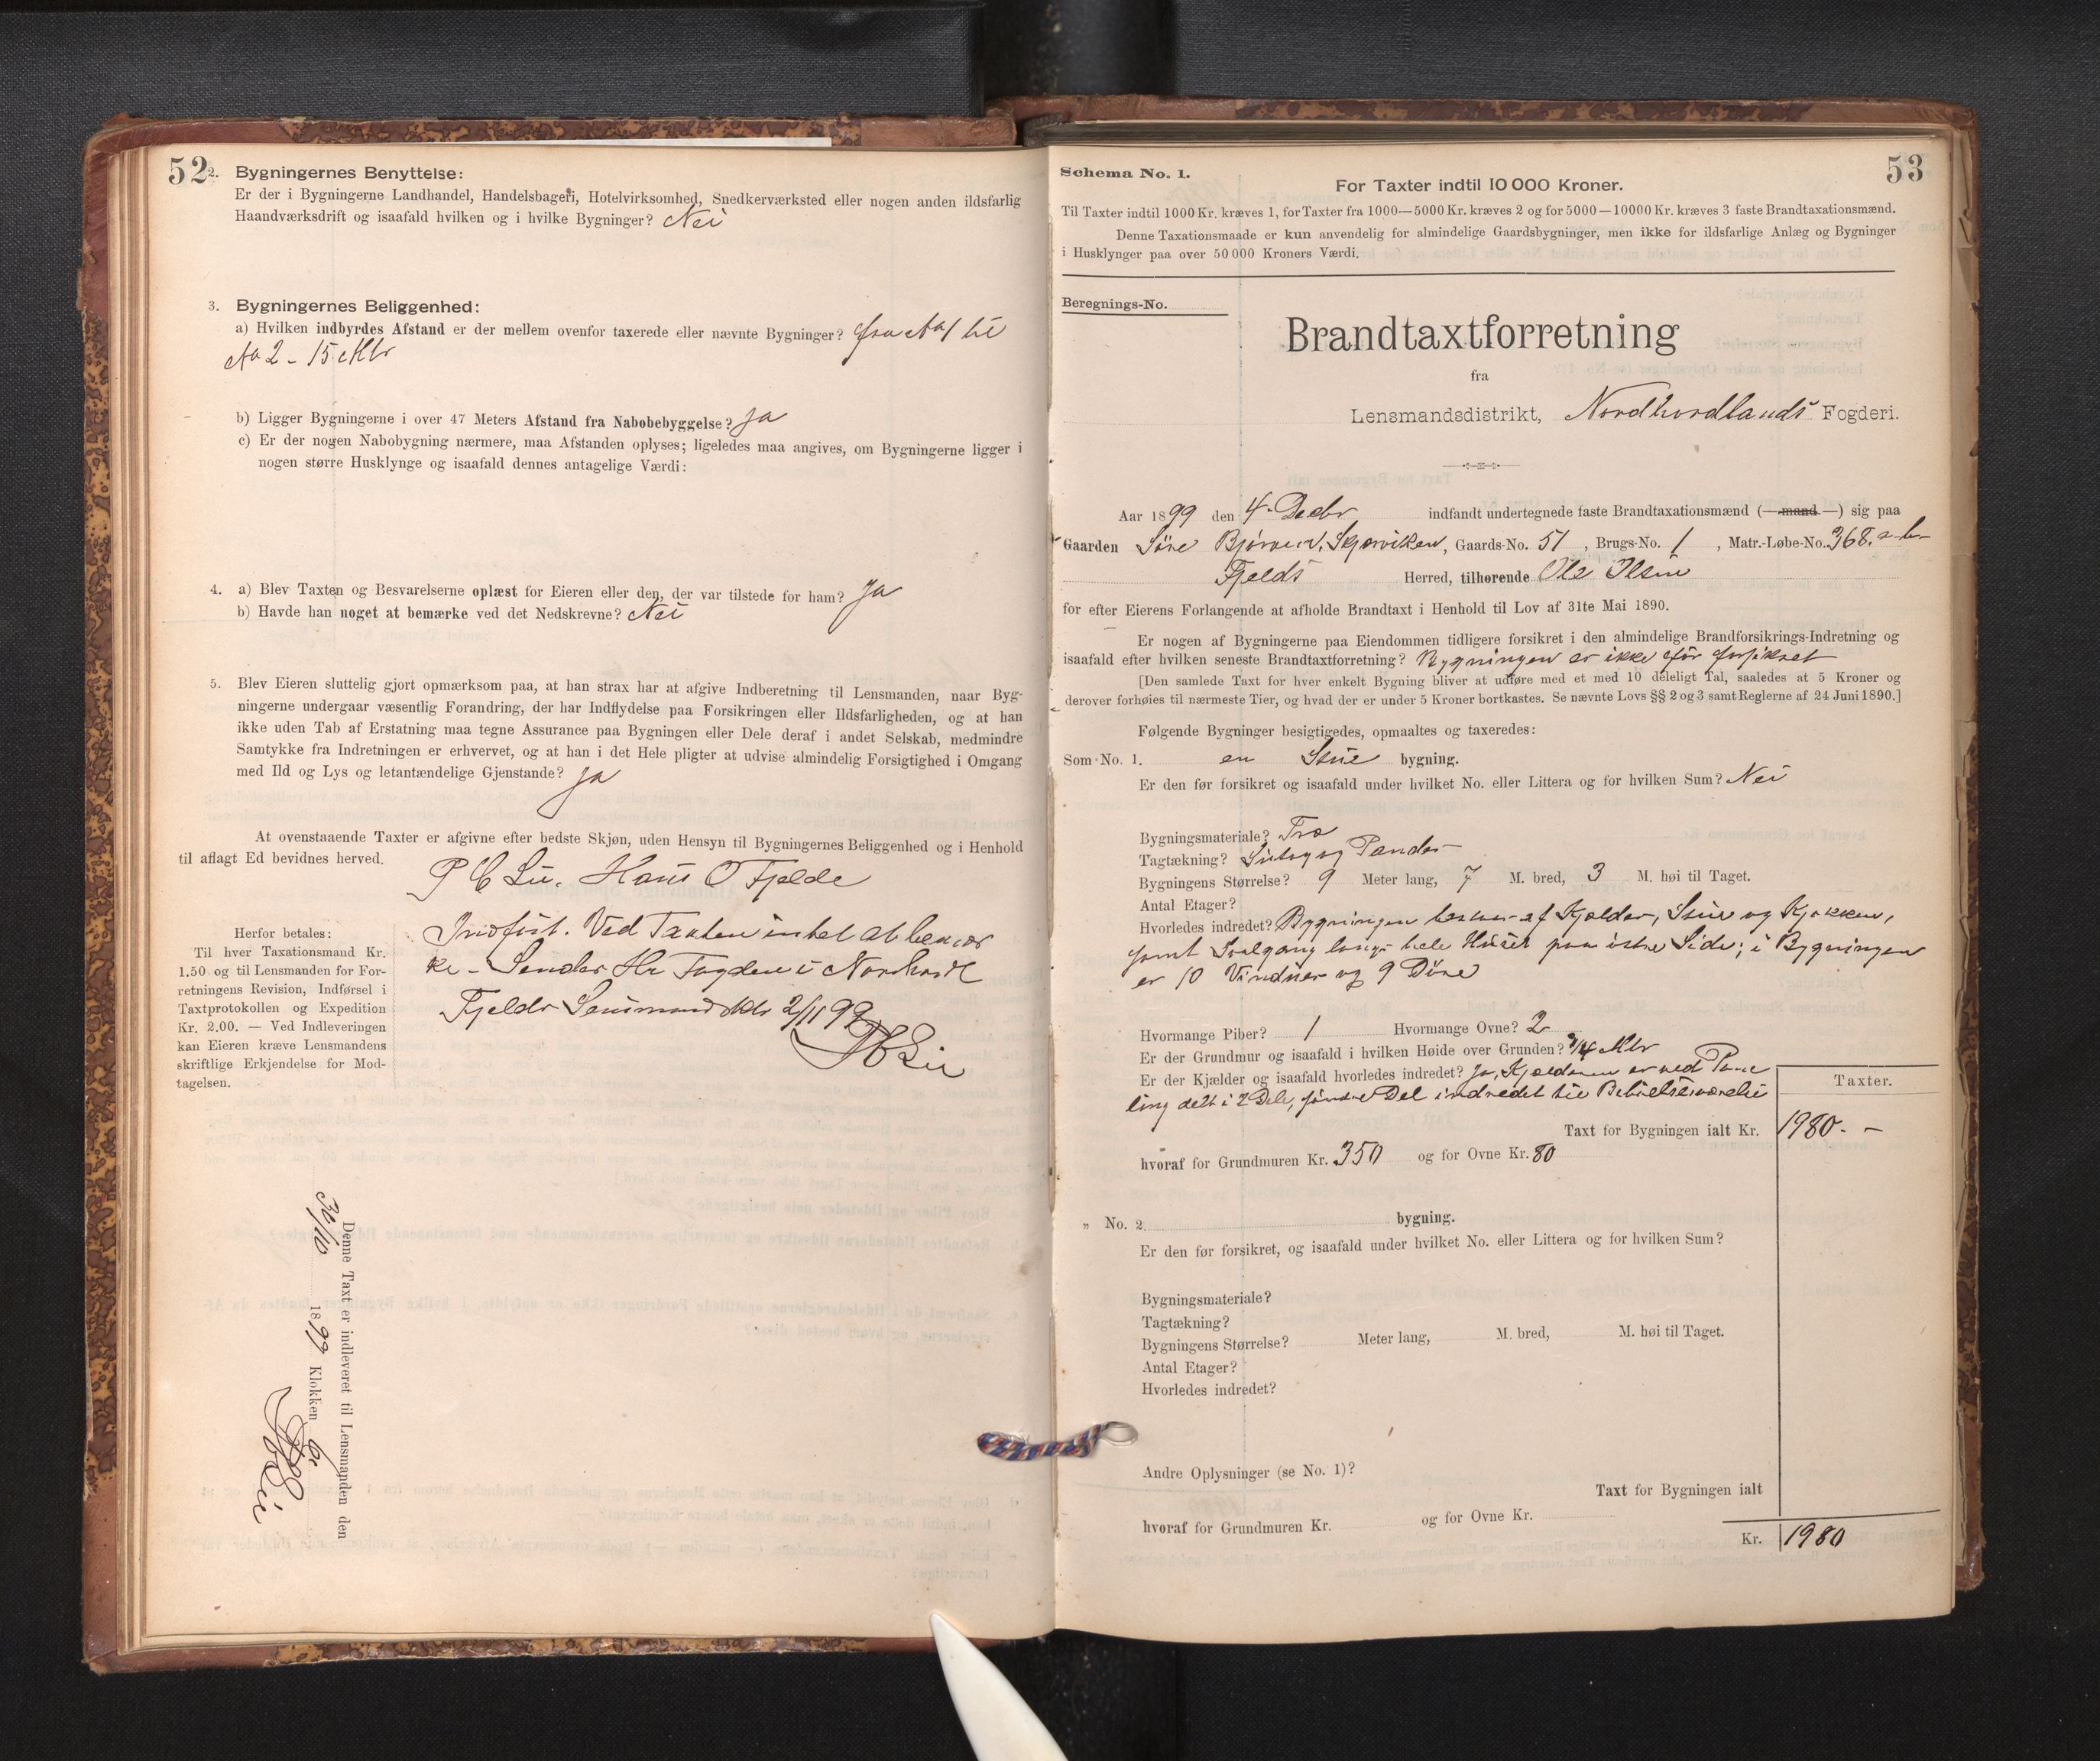 52
2. Bygningernes Benyttelse:
Er der i Bygningerne Landhandel, Handelsbageri, Hotelvirksomhed, Snedkerværksted eller nogen anden ildsfarlig
Haandværksdrift og isaafald hvilken og i hvilke Bygninger? Nei
3. Bygningernes Beliggenhed:
a) Hvilken indbyrdes Afstand er der mellem ovenfor taxerede eller nævnte Bygninger? fra No 1 til
No 2 - 15 Mtr
b) Ligger Bygningerne i over 47 Meters Afstand fra Nabobebyggelse? Ja
c) Er der nogen Nabobygning nærmere, maa Afstanden oplyses; ligeledes maa angives, om Bygningerne ligger i
nogen større Husklynge og isaafald dennes antagelige Værdi:
4. a) Blev Taxten og Besvarelserne oplæst for Eieren eller den, der var tilstede for ham? Ja
b) Havde han noget at bemærke ved det Nedskrevne? Nei
5. Blev Eieren sluttelig gjort opmærksom paa, at han strax har at afgive Indberetning til Lensmanden, naar Byg-
ningerne undergaar væsentlig Forandring, der har Indflydelse paa Forsikringen eller Ildsfarligheden, og at han
ikke uden Tab af Erstatning maa tegne Assurance paa Bygningen eller Dele deraf i andet Selskab, medmindre
Samtykke fra Indretningen er erhvervet, og at han i det Hele pligter at udvise almindelig Forsigtighed i Omgang
med Ild og Lys og letantændelige Gjenstande? Ja
At ovenstaaende Taxter er afgivne efter bedste Skjøn, uden Hensyn til Bygningernes Beliggenhed og i Henhold
til aflagt Ed bevidnes herved.
Hans O Fjelde
Herfor betales:
Til hver Taxationsmand Kr.
1.50 og til Lensmanden for For-
retningens Revision, Indførsel i
Taxtprotokollen og Expedition
Kr. 2.00. — Ved Indleveringen
kan Eieren kræve Lensmandens
skriftlige Erkjendelse for Mod-
tagelsen.
Indført. Ved Taxten intet at bemær
ke - Sendes Hr Fogden i Nordhordl
Fjelds Lensmandsktr 2/11 99
Denne Taxt er indleveret til Lensmanden den
30/10 1899 Klokken 6
53
Schema No. 1.
For Taxter indtil 10 000 Kroner.
Til Taxter indtil 1000 Kr. kræves 1, for Taxter fra 1000—5000 Kr. kræves 2 og for 5000—10000 Kr. kræves 3 faste Brandtaxationsmænd.
Denne Taxationsmaade er kun anvendelig for almindelige Gaardsbygninger, men ikke for ildsfarlige Anlæg og Bygninger
i Husklynger paa over 50 000 Kroners Værdi.
Beregnings-No.
Brandtaxtforretning
fra
Lensmandsdistrikt, Nordhordlands Fogderi.
Aar 1899 den 4. Decbr indfandt undertegnede faste Brandtaxationsmænd (— mand —) sig paa
Gaarden Søre Bjørvend, Skjærviken, Gaards-No. 51, Brugs-No. 1, Matr.-Løbe-No. 368. a-b-
Fjelds Herred, tilhørende Ole Olsen
for efter Eierens Forlangende at afholde Brandtaxt i Henhold til Lov af 31te Mai 1890.
Er nogen af Bygningerne paa Eiendommen tidligere forsikret i den almindelige Brandforsikrings-Indretning og
isaafald efter hvilken seneste Brandtaxtforretning? Bygningen er ikke før forsikret
[Den samlede Taxt for hver enkelt Bygning bliver at udføre med et med 10 deleligt Tal, saaledes at 5 Kroner og
derover forhøies til nærmeste Tier, og hvad der er under 5 Kroner bortkastes. Se nævnte Lovs §§ 2 og 3 samt Reglerne af 24 Juni 1890.]
Følgende Bygninger besigtigedes, opmaaltes og taxeredes:
Som No. 1. en Stue bygning.
Er den før forsikret og isaafald under hvilket No. eller Littera og for hvilken Sum? Nei
Bygningsmateriale? Træ
Tagtækning? Sutag og Pander
Bygningens Størrelse? 9 Meter lang, 7 M. bred, 3 M. høi til Taget.
Antal Etager?
Hvorledes indredet? Bygningen bestaar af Kjælder, Stue og Kjøkken,
samt Svalgang langs hele Huset paa østre Side; i Bygningen
er 10 Vinduer og 9 Døre
Hvormange Piber? 1 Hvormange Ovne? 2
Er der Grundmur og isaafald i hvilken Høide over Grunden? 3/4 Mtr
Er der Kjælder og isaafald hvorledes indredet? Ja, Kjælderen er ved Pane
ling delt i 2 Dele, søndre Del indredet til Beboelsesværelse
Taxter.
Taxt for Bygningen ialt Kr. 1980. -
hvoraf for Grundmuren Kr. 350 og for Ovne Kr. 80
„ No. 2 bygning.
Er den før forsikret, og isaafald under hvilket No. eller Littera og for hvilken Sum?
Bygningsmateriale?
Tagtækning?
Bygningens Størrelse? Meter lang, M. bred, M. høi til Taget.
Antal Etager?
Hvorledes indredet?
Andre Oplysninger (se No. 1)?
Taxt for Bygningen ialt
hvoraf for Grundmuren Kr. og for Ovne Kr.
Kr. 1980